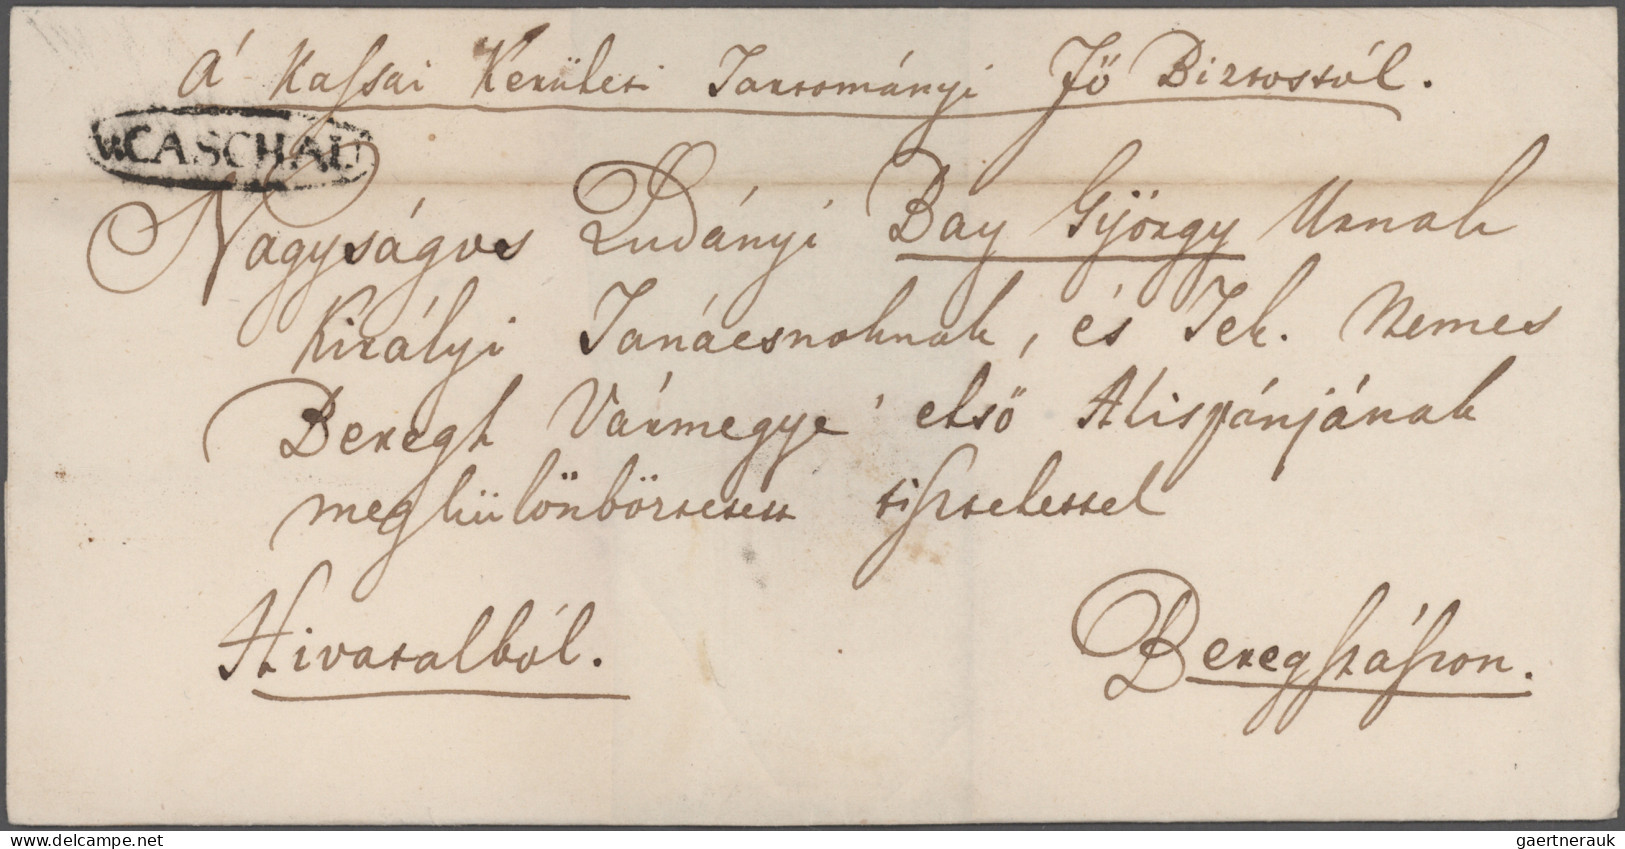 A' Kassai Kerületi Tartományi Fő Biztostól.
v. CASCHAU
Nagyságos Ludányi Bay György Urnak
Királyi Tanácsnoknak, és Tek. Nemes
Beregh Vármegye' első Alispánjának
megkülönböztetett tisztelettel
Hivatalból.
Beregszászon.
www.delcampe.net
gaertnerauk